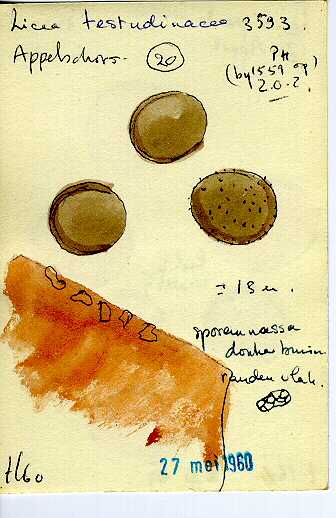 Licea testudinacea 3593
Appelschors. 20
PH
(by 1559 op)
2.0.2.
= 13 u.
sporenmassa
donker bruin
randen vlak.
5/60
27 mei 1960